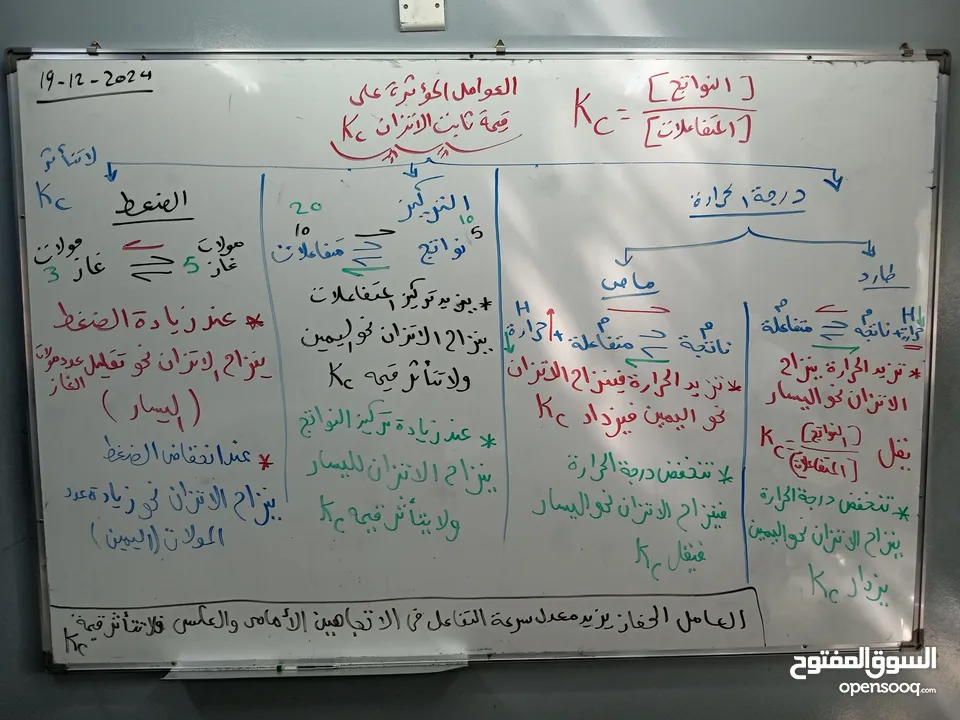 19-12-2024
العوامل المؤثرة على
قيمة ثابت الاتزان Kc
Kc = [النواتج] / [المتفاعلات]
درجة الحرارة
طارد
H
حرارة + ناتجة ⇌ متفاعلة
* تزيد الحرارة ينزاح
الاتزان نحو اليسار
يقل Kc = [النواتج] / [المتفاعلات]
* تنخفض درجة الحرارة
ينزاح الاتزان نحو اليمين
يزداد Kc
ماص
H
ناتجة ⇌ متفاعلة + حرارة
* تزيد الحرارة فينزاح الاتزان
نحو اليمين فيزداد Kc
* تنخفض درجة الحرارة
فينزاح الاتزان نحو اليسار
فيقل Kc
التركيز
20
10
10
5
نواتج ⇌ متفاعلات
* يزيد تركيز المتفاعلات
ينزاح الاتزان نحو اليمين
ولا تتأثر قيمة Kc
* عند زيادة تركيز النواتج
ينزاح الاتزان لليسار
ولا يتأثر قيمة Kc
لا تتأثر
Kc
الضغط
مولات غاز 5 ⇌ مولات غاز 3
* عند زيادة الضغط
ينزاح الاتزان نحو تقليل عدد مولات
الغاز
(اليسار)
* عند انخفاض الضغط
ينزاح الاتزان نحو زيادة عدد
المولات (اليمين)
العامل الحفاز يزيد معدل سرعة التفاعل في الاتجاهين الأمامي والعكسي فلا تتأثر قيمة Kc
السوق المفتوح
opensooq.com